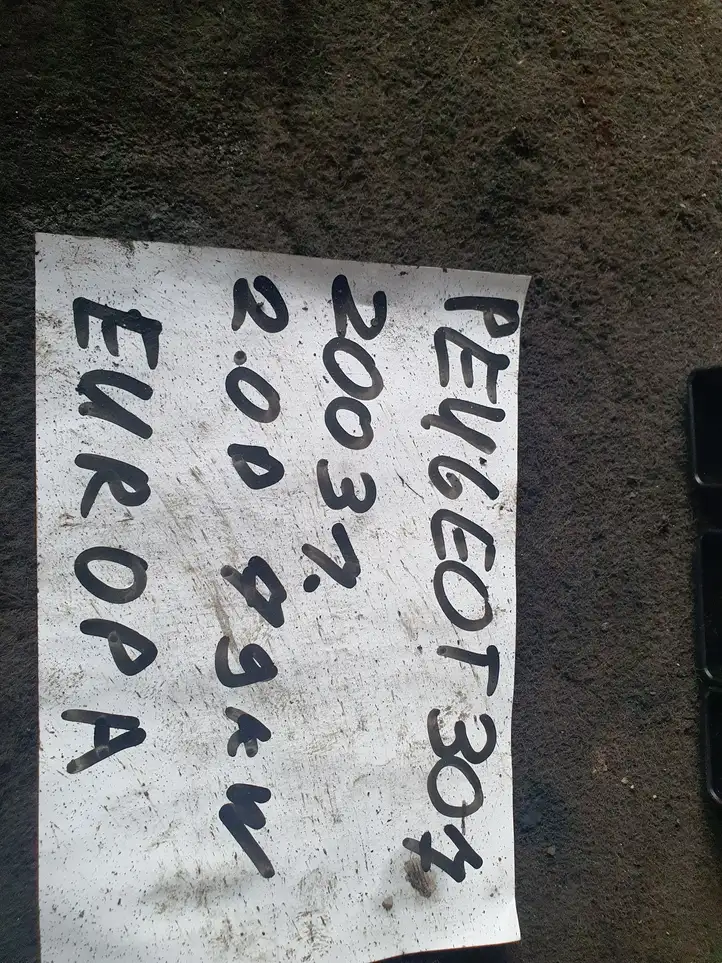 PEUGEOT 307
2003г.
2.0D 99kW
EUROPA